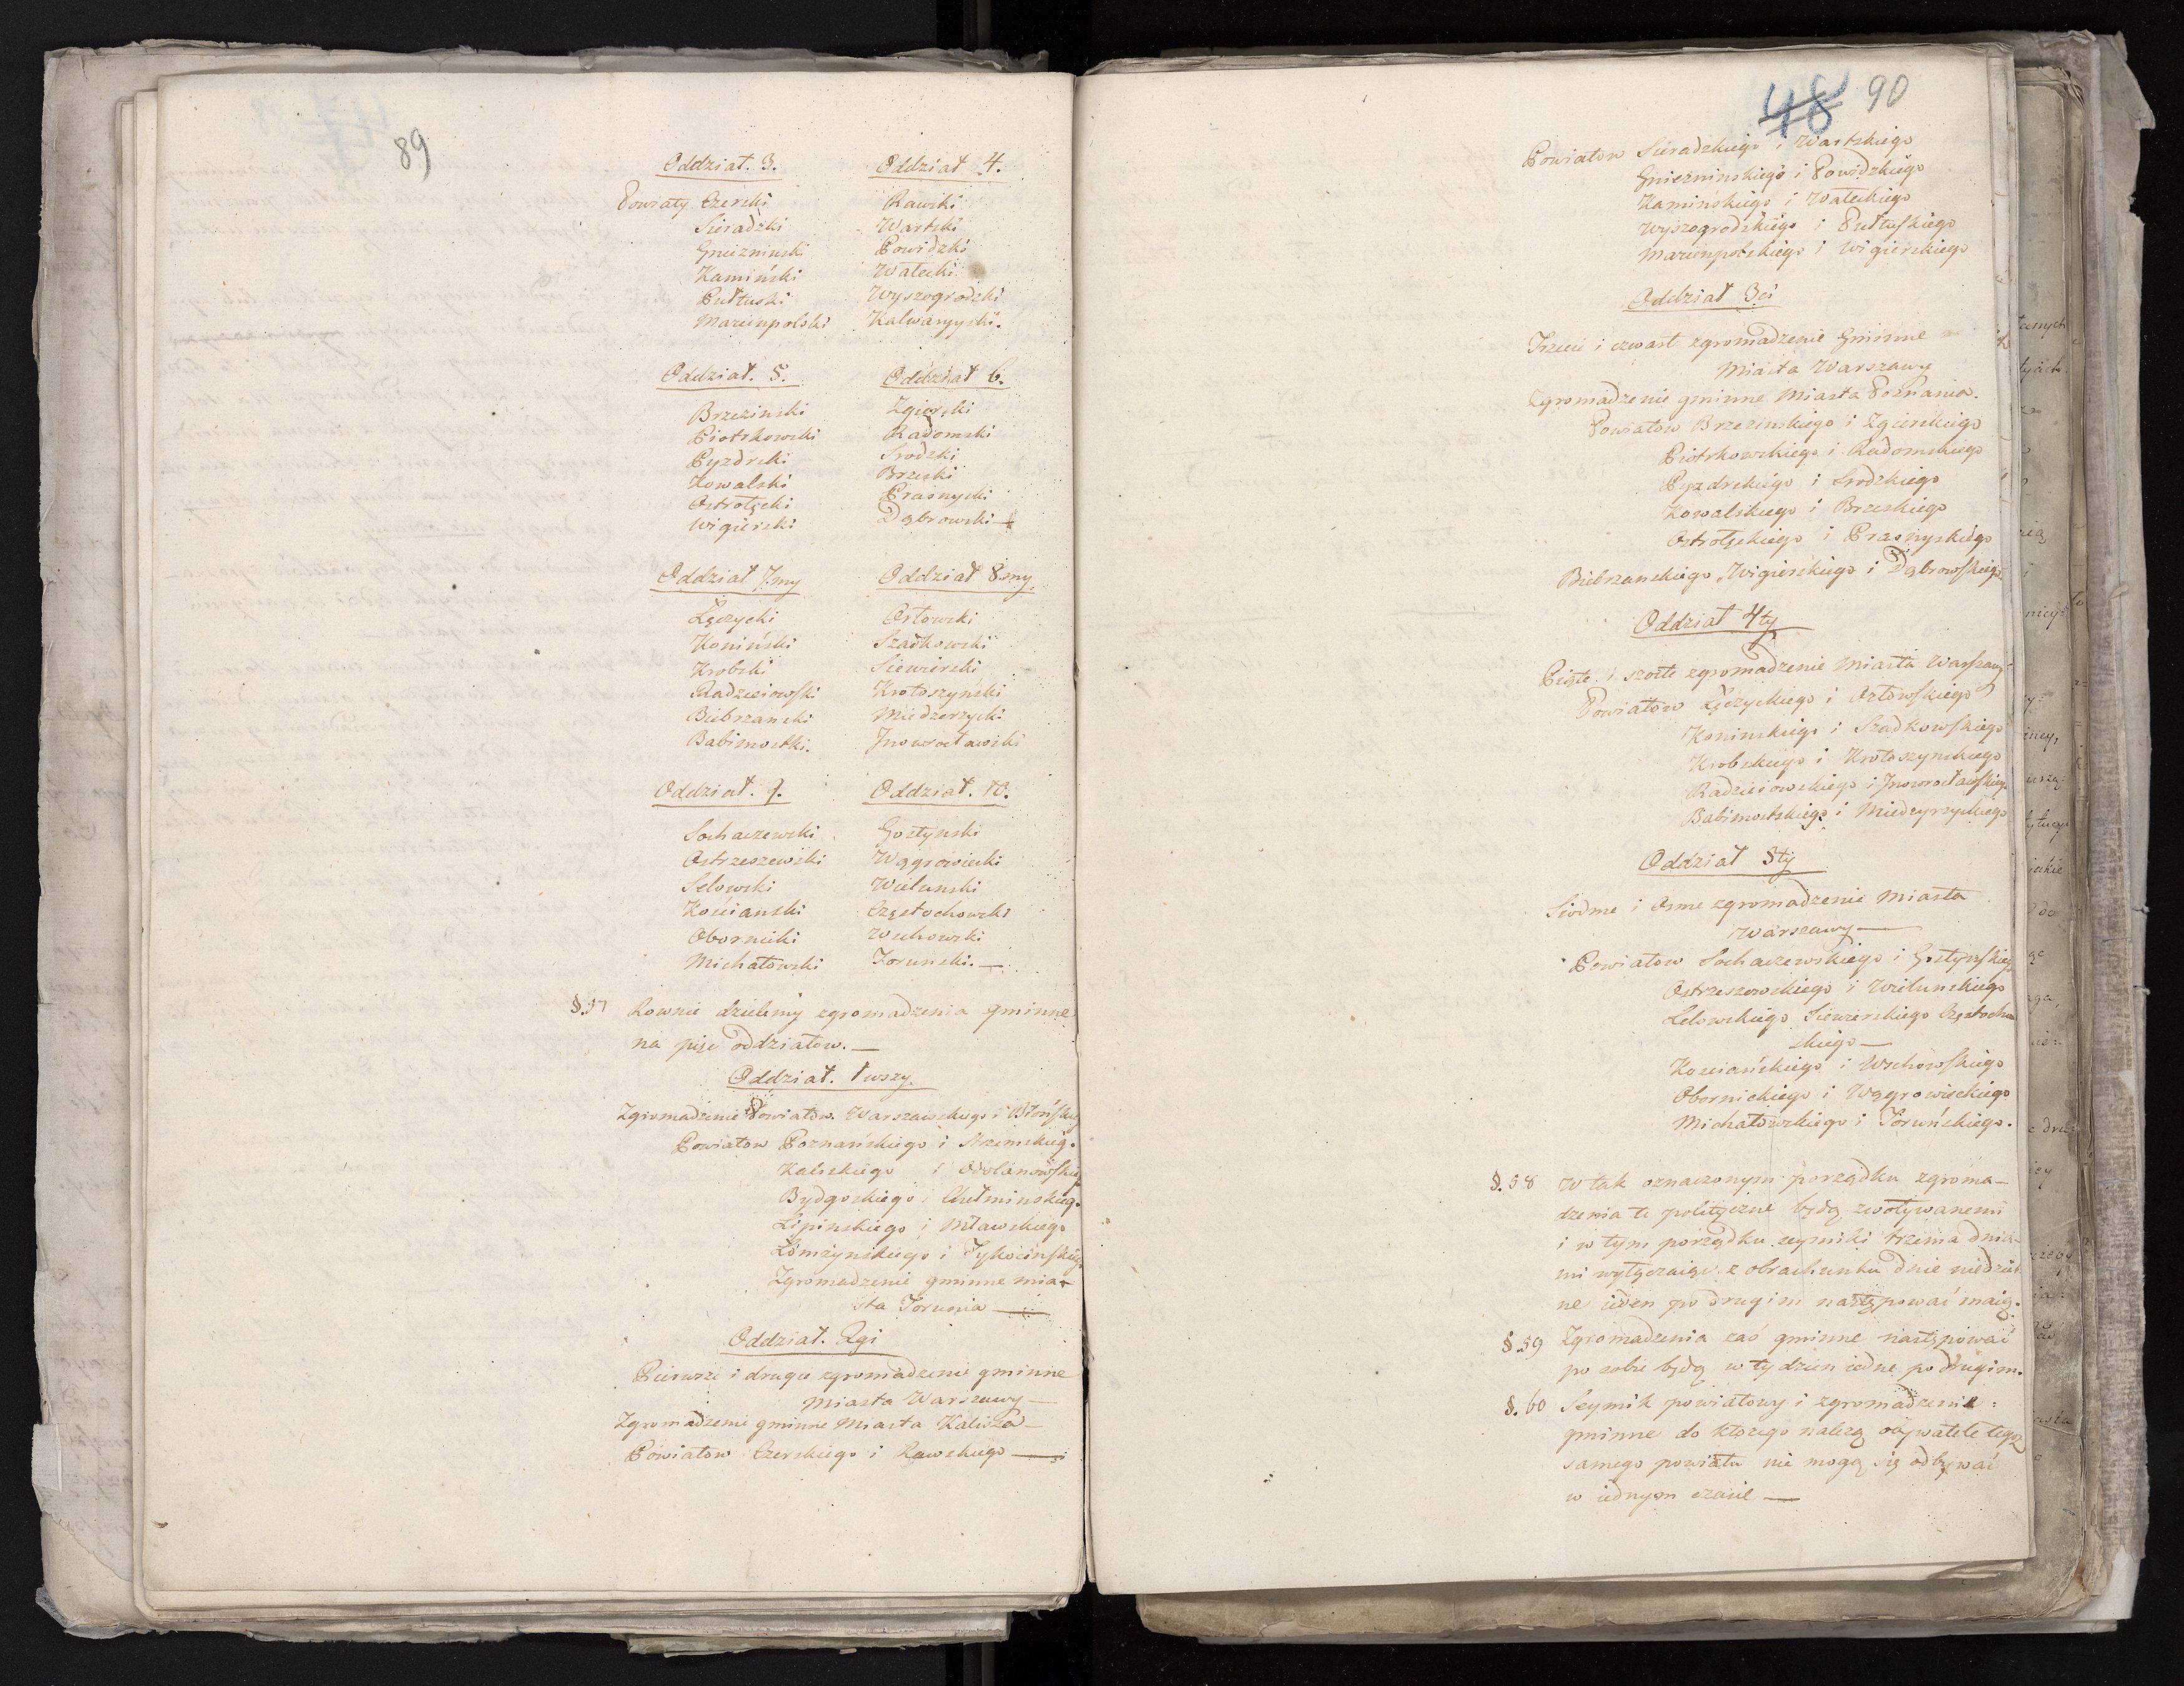 89
Oddział. 3. Oddział 4.
Powiaty Czerski Rawski
Sieradzki Wartski
Gniezninski Powidzki
Kamiński Wałecki
Pułtuski Wyszogrodzki
Maryenpolski Kalwaryyski.
Oddział. 5. Oddział 6.
Brzezinski Zgierski
Piotrkowski Radomski
Pyzdrski Srodzki
Kowalski Brzeski
Ostrołęcki Prasnyski
Wigierski Dąbrowski
Oddział 7.my Oddział 8.my.
Łęczycki Orłowski
Koniński Szadkowski
Krobski Siewierski
Radzieiowski Krotoszyński
Biebrzanski Miedzerzycki
Babimostki. Jnowrocławski
Oddział. 9. Oddział. 10.
Sochaczewski Gostynski
Ostrzeszewski Wągrowiecki
Lelowski Wielunski
Kościanski Częstochowski
Obornicki Wschowski
Michałowski Torunski. —
§.57 Rownie dzielemy zgromadzenia gminne
na pięć oddziałow. —
Oddział. 1wszy.
Zgromadzenie Powiatow. Warszawskiego i Błońskieg
Powiatow Poznańskiego i Szremskieg.
Kaliskiego i Odolanowskieg
Bydgoskiego i Chełminskieg.
Lipinskiego i Mławskiego
Łomżynskiego i Tykocinskieg.
Zgromadzenie gminne mia-
sta Torunia —
Oddział. 2gi
Pierwsze i drugie zgromadzenie gminne
Miasta Warszawy —
Zgromadzenie gminne Miasta Kalisza —
Powiatow Czerskiego i Rawskiego —
48 90
Powiatow Sieradzkiego i Wartskiego
Gniezninskiego i Powidzkiego
Kaminskiego i Wałeckiego
Wyszogrodzkiego i Pułtuskiego
Maryenpolskiego i Wigierskiego
Oddział 3ci
Trzecie i czwart zgromadzenie Gminne
Miasta Warszawy
Zgromadzenie gminne Miasta Poznania.
Powiatow Brzezinskiego i Zgierskiego
Piotrkowskiego i Radomskiego
Pyzdrskiego i Srodzkiego
Kowalskiego i Brzeskiego
Ostrołęckiego i Prasnyskiego
Biebrzanskiego Wigierskiego i Dąbrowskiego
Oddział 4ty
Piąte i szoste zgromadzenie Miasta Warszawy
Powiatow Łęczyckiego i Orłowskiego
Koninskiego i Szadkowskiego
Krobskiego i Krotoszynskiego
Radzieiowskiego i Jnowrocławskiego
Babimostskiego i Miedzyrzyckiego
Oddział 5ty
Siodme i Osme zgromadzenie Miasta
Warszawy —
Powiatow Sochaczewskiego i Gostynskieg
Ostrzeszowskiego i Wielunskiego
Lelowskiego Siewierskiego Częstocho
skiego —
Kosciańskiego i Wschowskiego
Obornickiego i Wągrowieckiego
Michałowskiego i Toruńskiego.
§.58 W tak oznaczonym porządku zgroma-
dzenia te polityczne będą zwoływanemi
i w tym porządku seymiki trzema dnia-
mi wyłączaiąc z obrachunku dnie niedziel
ne ieden po drugim następować maią.
§.59 Zgromadzenia zaś gminne następować
po sobie będą w tydzien iedne po drugim.
§.60 Seymik powiatowy i zgromadzenie
gminne do ktorego należą obywatele tegoż
samego powiatu nie mogą się odbywać
w iednym czasie —